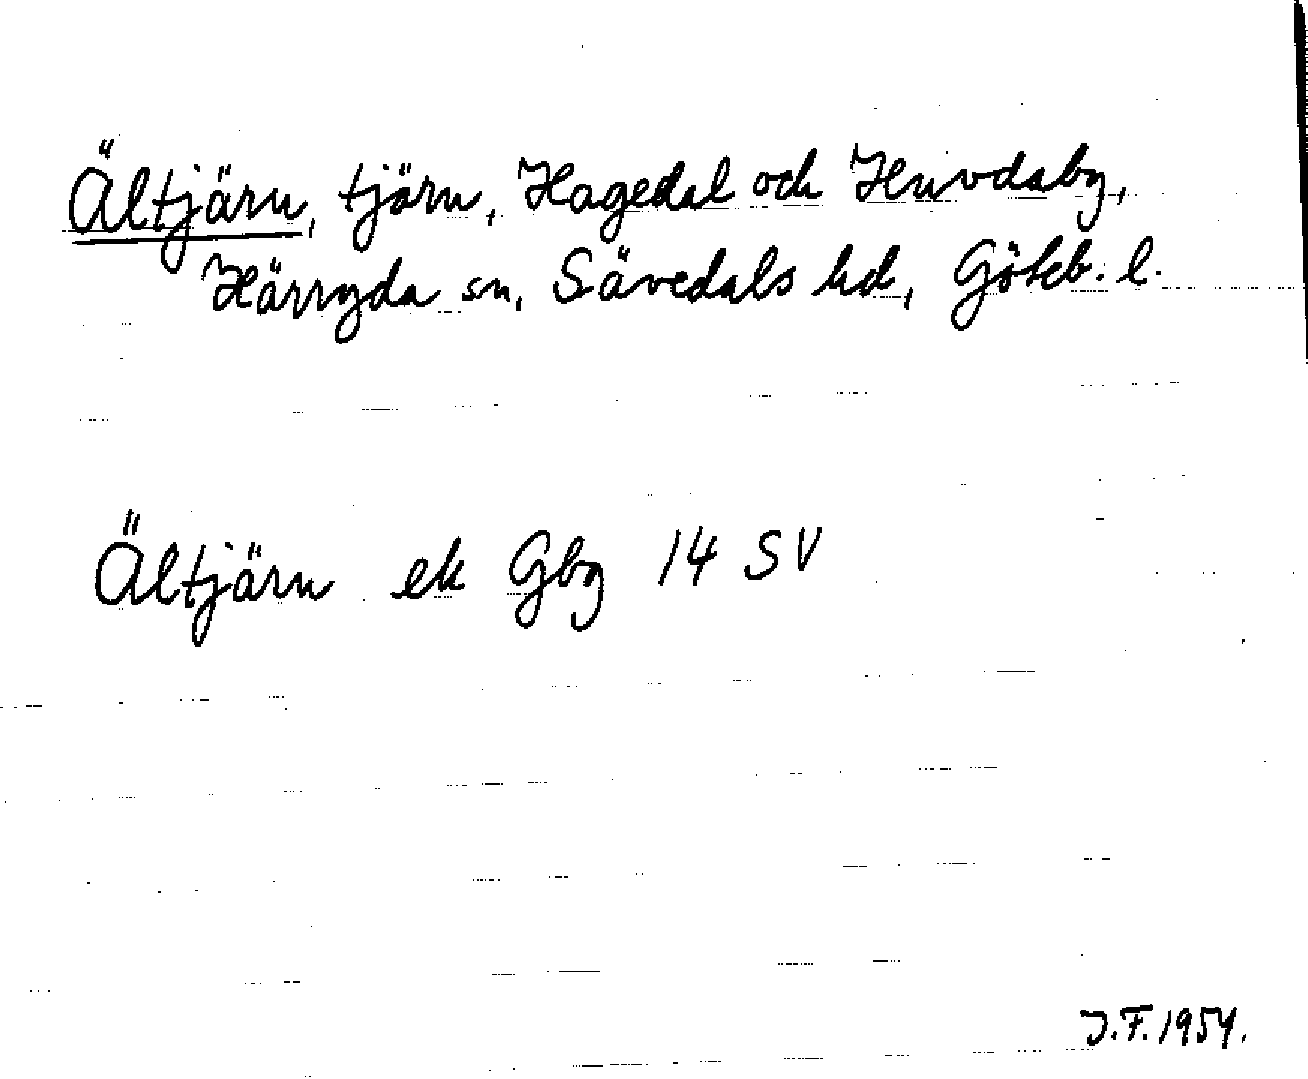 Ältjärn, tjärn, Hagedal och Huvdaby,
Härryda sn, Sävedals hd, Göteb. l.
Ältjärn ek Gbg 14 SV
J.F. 1954.